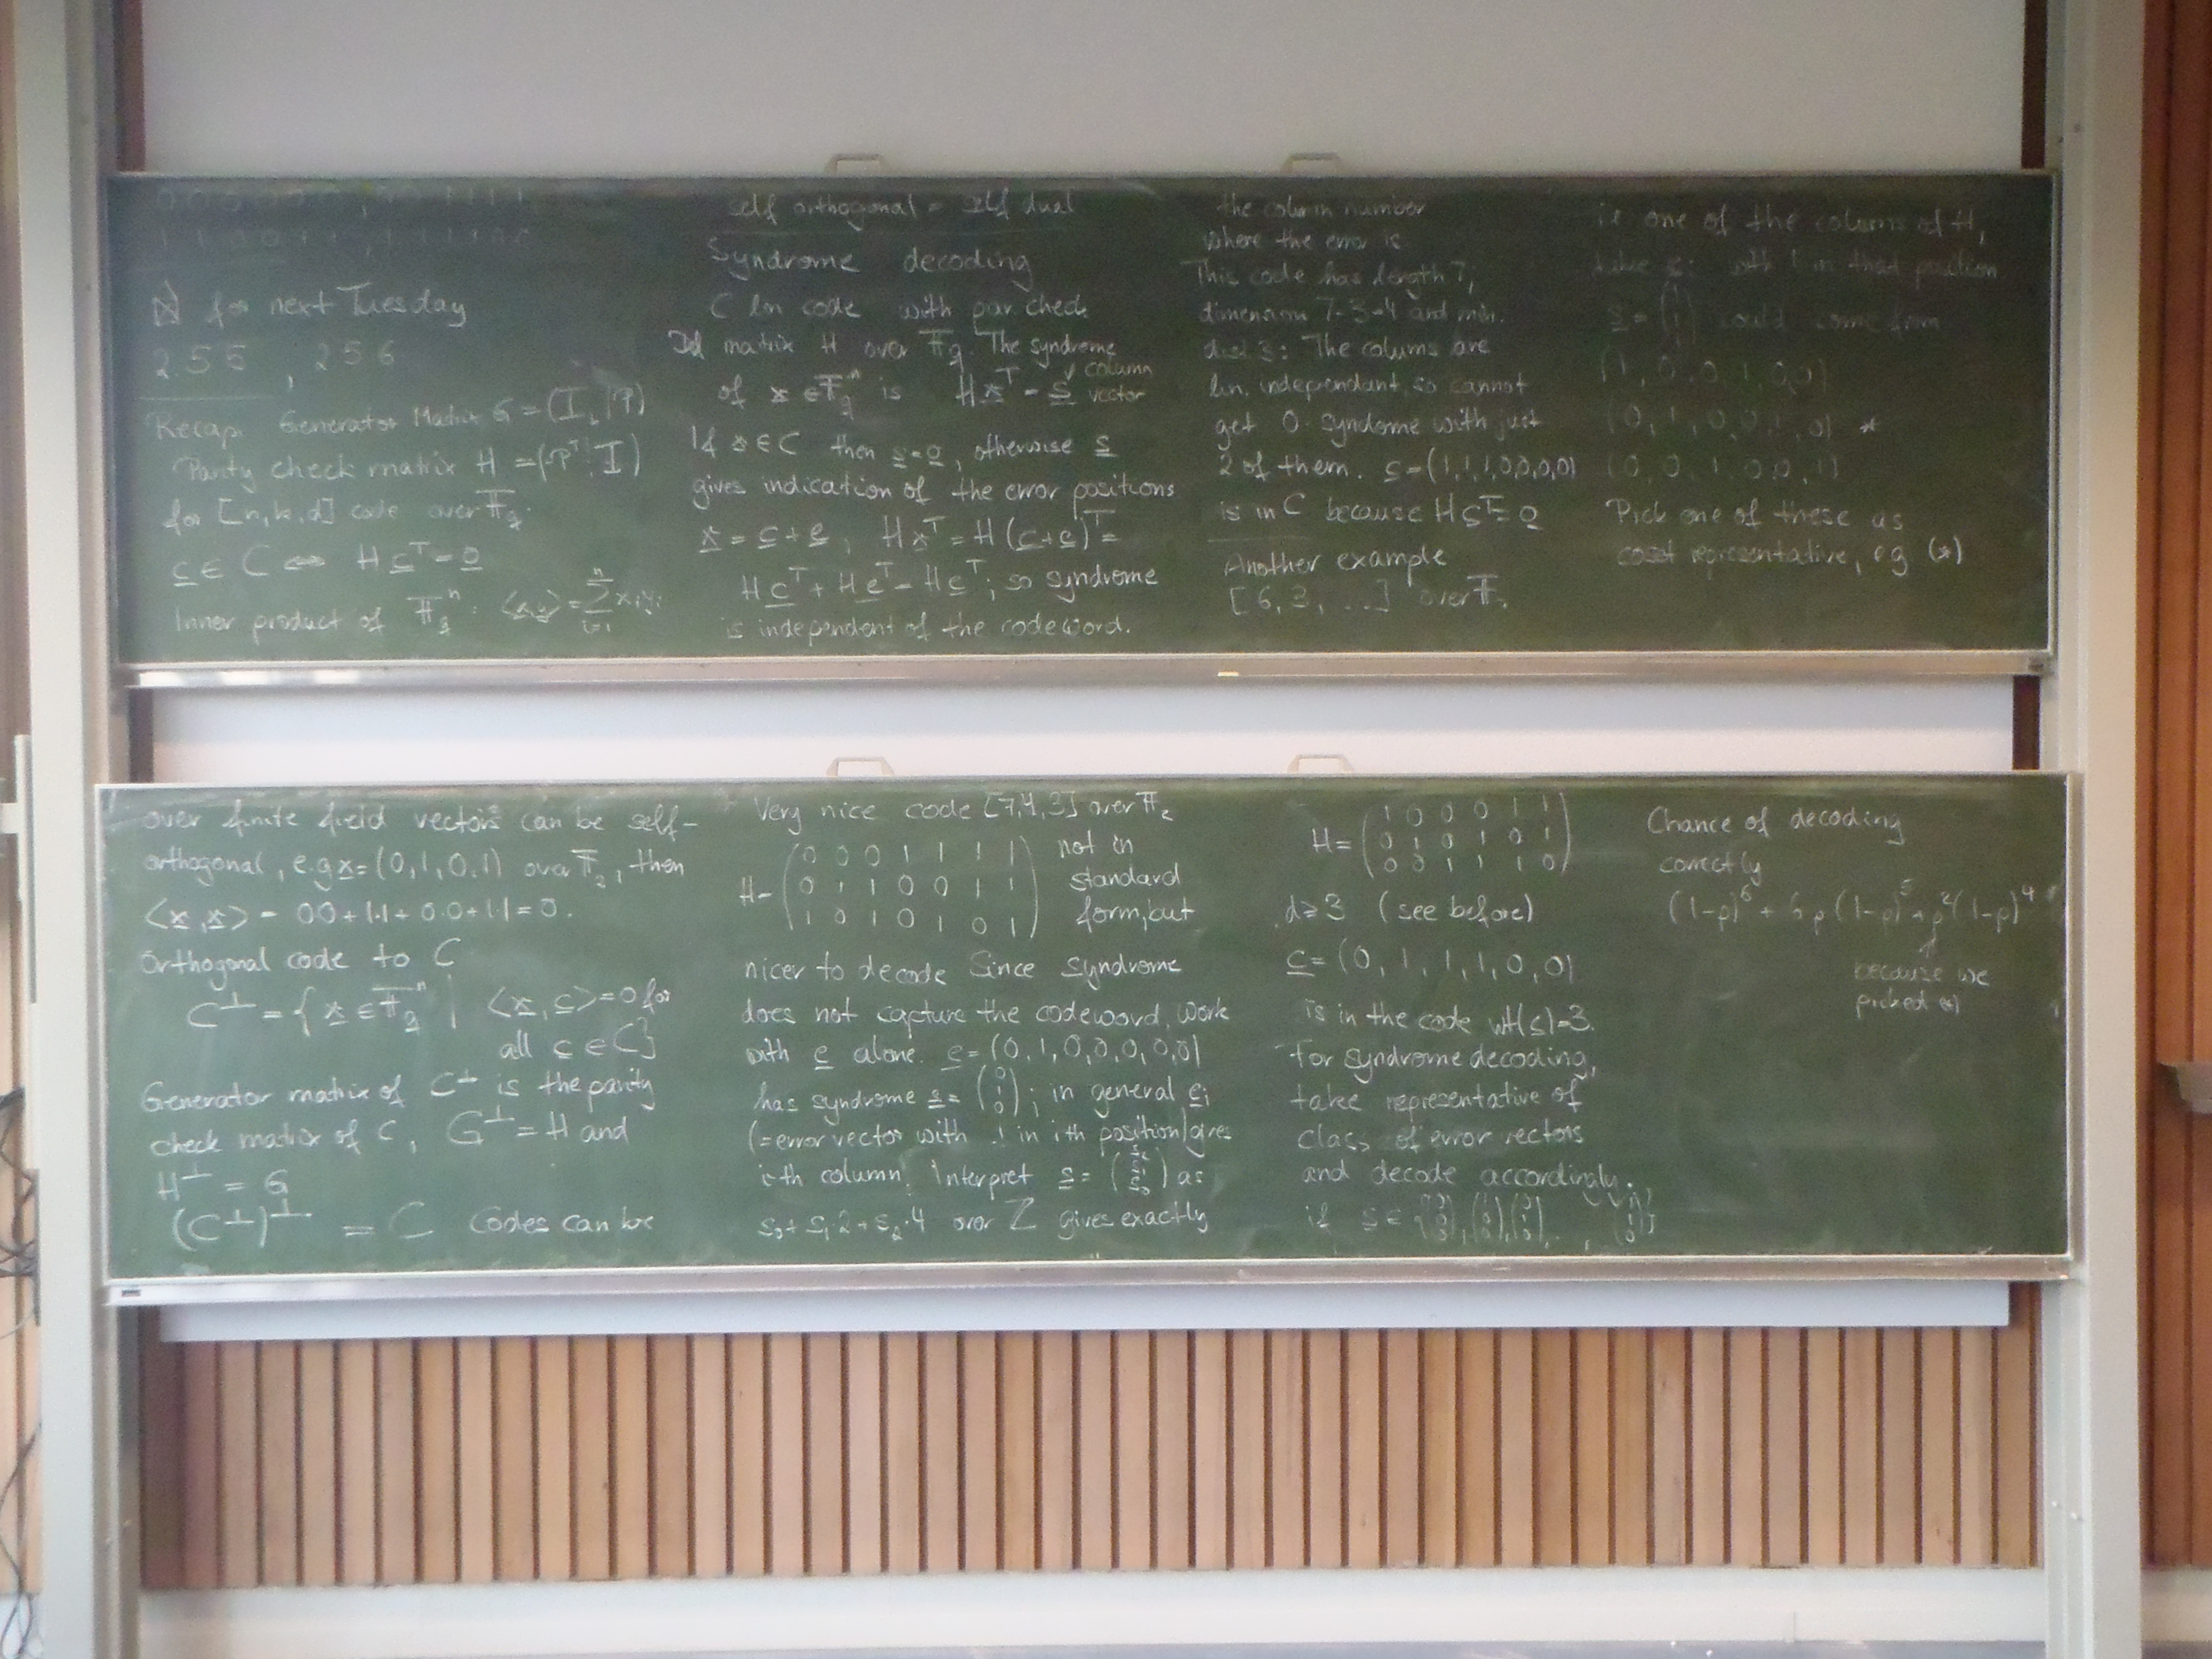 0 0 0 0 0 0 , 0 0 1 1 1 1
1 1 0 0 1 1 , 1 1 1 1 0 0
for next Tuesday
2.55 , 2.56
Recap Generator Matrix G = (I_k | P)
Parity check matrix H = (-P^T | I)
for [n, k, d] code over F_q.
c ∈ C ⇔ H c^T = 0
Inner product of F_q^n : <x,y> = Σ_{i=1}^n x_i y_i
over finite field vectors can be self-
orthogonal, e.g x = (0, 1, 0, 1) over F_2, then
<x, x> = 0·0 + 1·1 + 0·0 + 1·1 = 0.
Orthogonal code to C
C^⊥ = { x ∈ F_2^n | <x, c> = 0 for
all c ∈ C}
Generator matrix of C^⊥ is the parity
check matrix of C, G^⊥ = H and
H^⊥ = G
(C^⊥)^⊥ = C Codes can be
self orthogonal = self dual
Syndrome decoding
C lin code with par. check
Def matrix H over F_q. The syndrome
of x ∈ F_q^n is H x^T = s column
vector
If x ∈ C then s = 0, otherwise s
gives indication of the error positions
x = c + e, H x^T = H (c + e)^T =
H c^T + H e^T = H e^T; so syndrome
is independent of the codeword.
Very nice code [7,4,3] over F_2
H = ( 0 0 0 1 1 1 1 ) not in
( 0 1 1 0 0 1 1 ) standard
( 1 0 1 0 1 0 1 ) form, but
nicer to decode Since syndrome
does not capture the codeword, work
with e alone. e = (0, 1, 0, 0, 0, 0, 0)
has syndrome s = (0 1 0); in general e_i
(= error vector with 1 in ith position) gives
i-th column. Interpret s = (s_2 s_1 s_0) as
s_0 + s_1·2 + s_2·4 over Z gives exactly
the column number
where the error is
This code has length 7,
dimension 7-3=4 and min.
dist 3: The colums are
lin. independant, so cannot
get 0-syndome with just
2 of them. c = (1,1,1,0,0,0,0)
is in C because H c^T = 0
Another example
[6, 3, ...] over F_2
H = ( 1 0 0 0 1 1 )
( 0 1 0 1 0 1 )
( 0 0 1 1 1 0 )
d ≥ 3 (see before)
c = (0, 1, 1, 1, 0, 0)
is in the code wt(c) = 3.
For syndrome decoding,
take representative of
class of error vectors
and decode accordingly.
if s ∈
is one of the colums of H,
take e_i with 1 in that position
s = (1 1 1) could come from
(1, 0, 0, 1, 0, 0)
(0, 1, 0, 0, 1, 0) *
(0, 0, 1, 0, 0, 1)
Pick one of these as
coset representative, eg (*)
Chance of decoding
correctly
(1-p)^6 + 6 p (1-p)^5 + p^2 (1-p)^4
because we
picked (*)